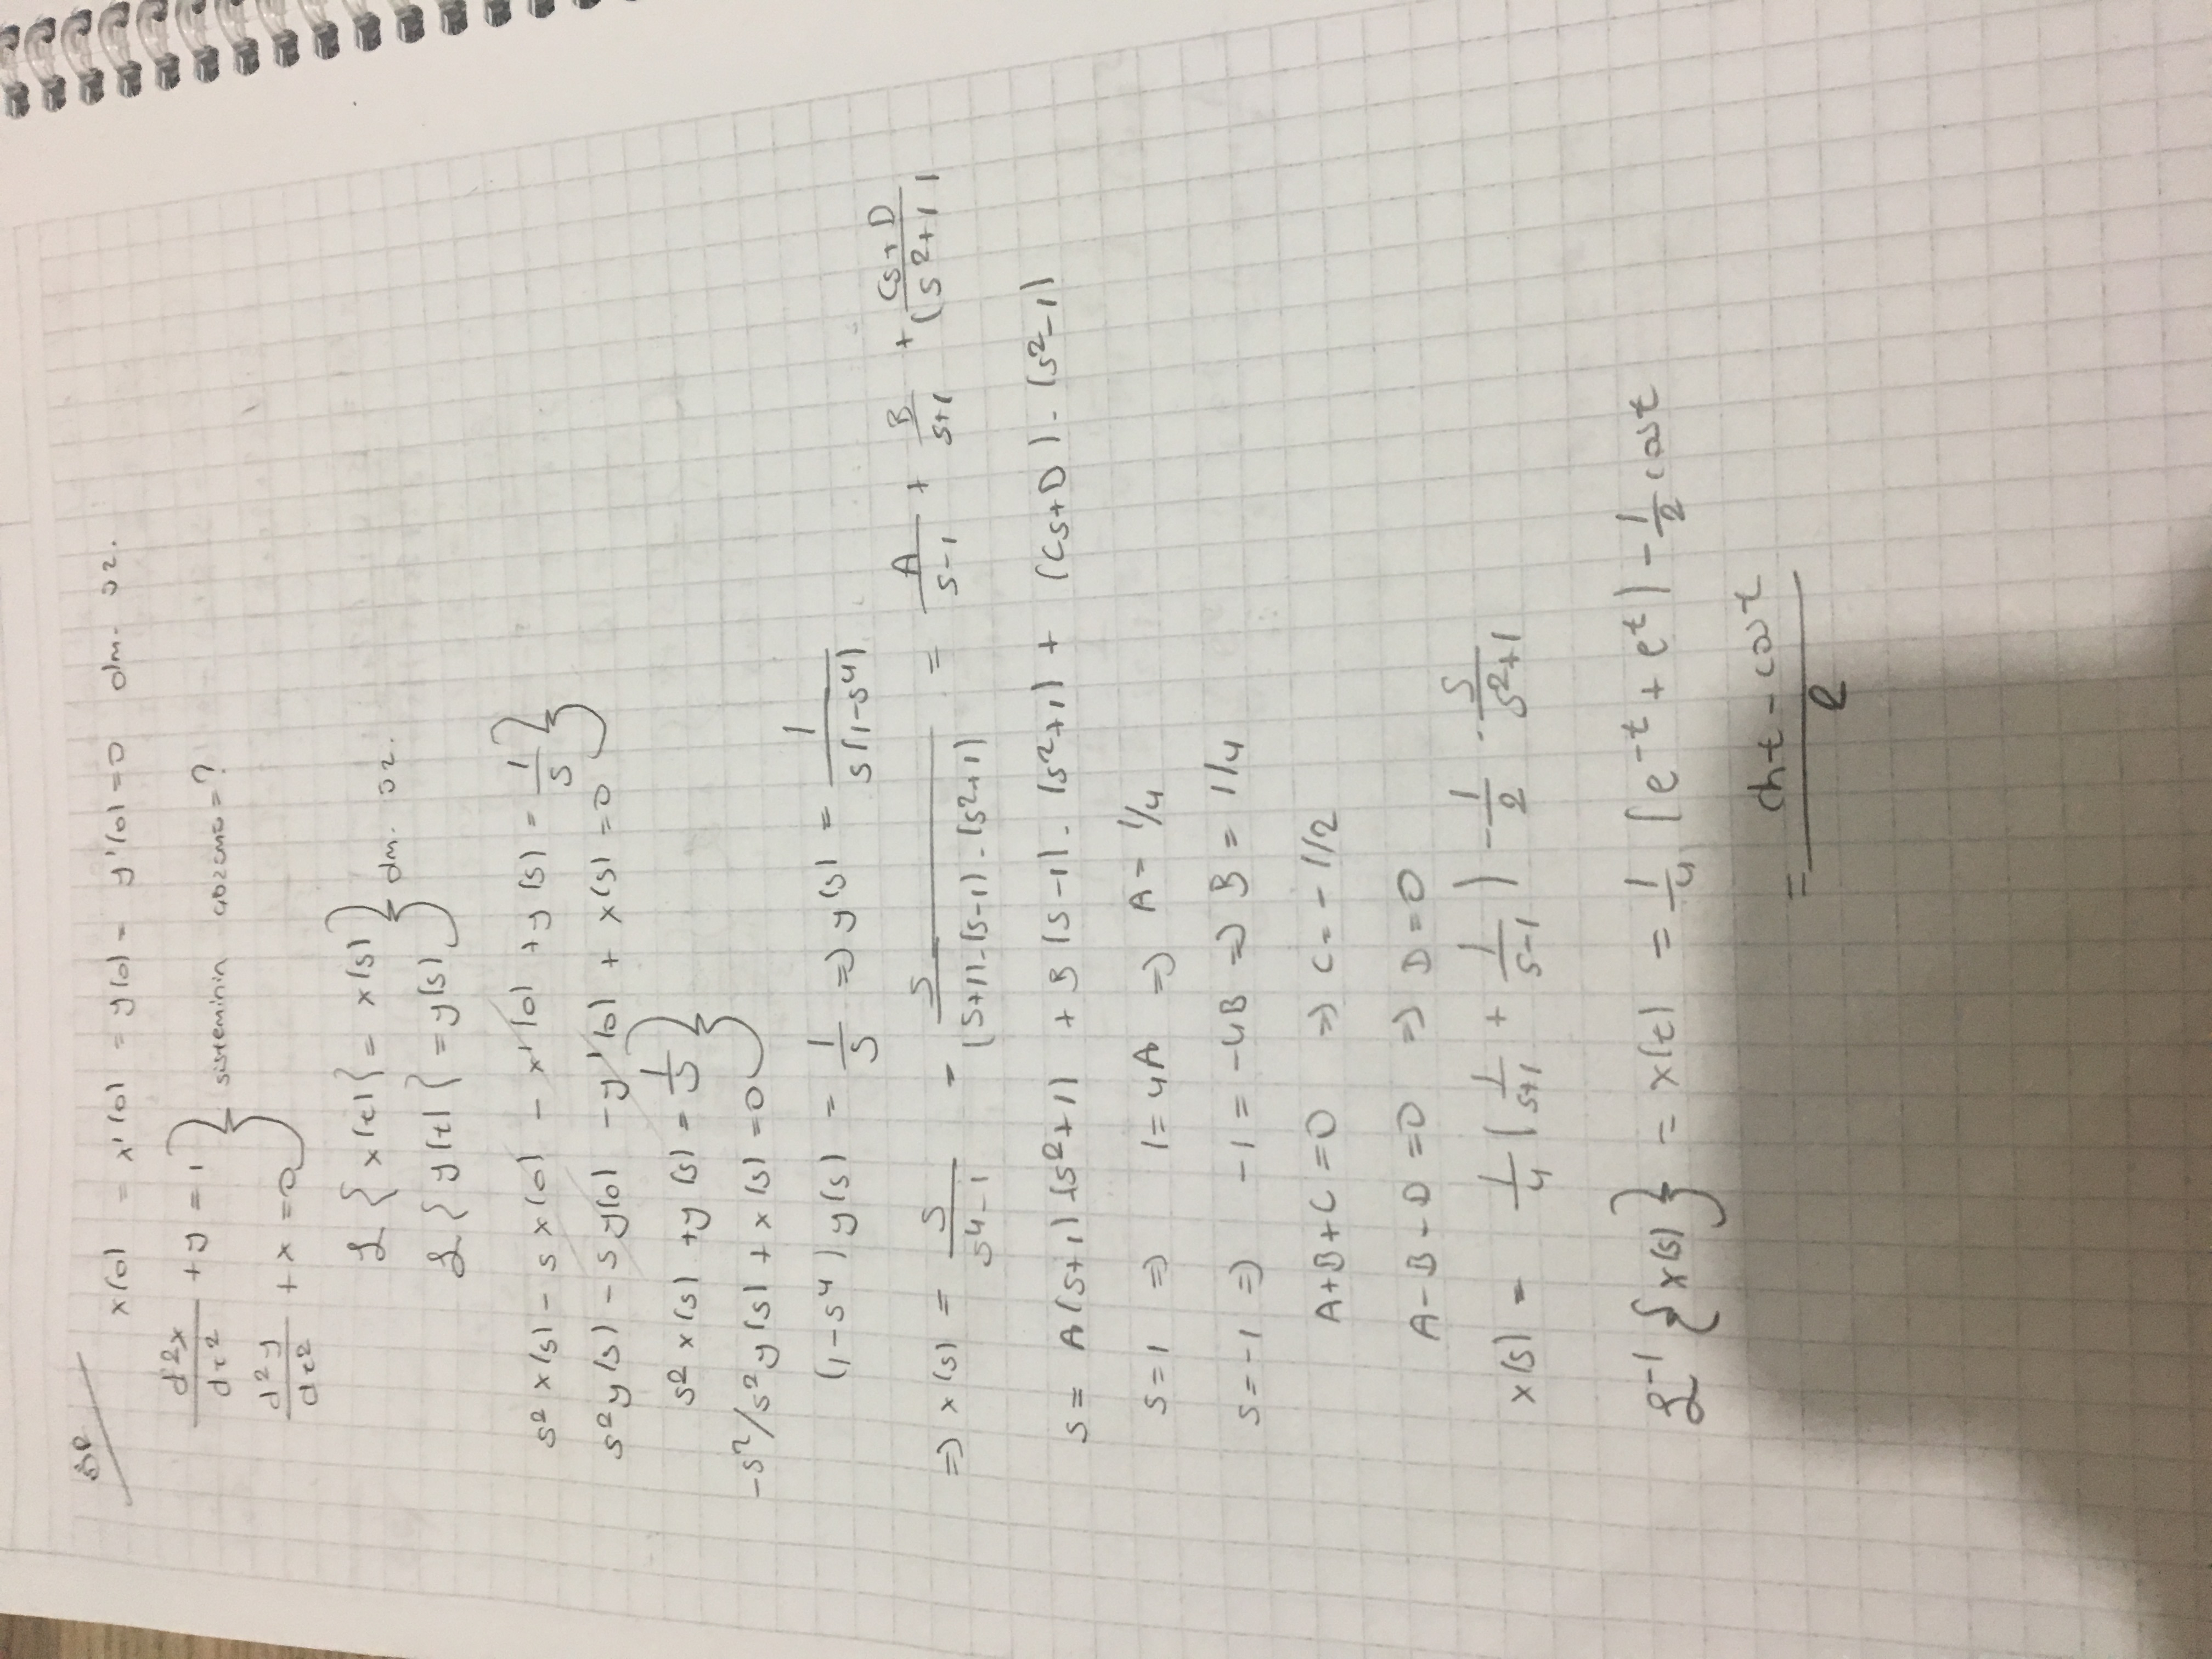 ÖR
x(0) = x'(0) = y(0) = y'(0) = 0 olm. üz.
d²x/dt² + y = 1
d²y/dt² + x = 0 } sisteminin çözümü = ?
ℒ{x(t)} = x(s)
ℒ{y(t)} = y(s) } olm. üz.
s² x(s) - s x(0) - x'(0) + y(s) = 1/s
s² y(s) - s y(0) - y'(0) + x(s) = 0 }
s² x(s) + y(s) = 1/s
-s²/ s² y(s) + x(s) = 0 }
(1-s⁴) y(s) = 1/s ⇒ y(s) = 1/(s(1-s⁴))
⇒ x(s) = s/(s⁴-1) = s/((s+1).(s-1).(s²+1)) = A/(s-1) + B/(s+1) + (Cs+D)/(s²+1)
s = A(s+1).(s²+1) + B(s-1).(s²+1) + (Cs+D).(s²-1)
s=1 ⇒ 1=4A ⇒ A = 1/4
s=-1 ⇒ -1 = -4B ⇒ B = 1/4
A+B+C = 0 ⇒ C = -1/2
A-B-D = 0 ⇒ D = 0
x(s) = 1/4 (1/(s+1) + 1/(s-1)) - 1/2 . s/(s²+1)
ℒ⁻¹{x(s)} = x(t) = 1/4 (e⁻ᵗ + eᵗ) - 1/2 cost
= (cht - cost)/2